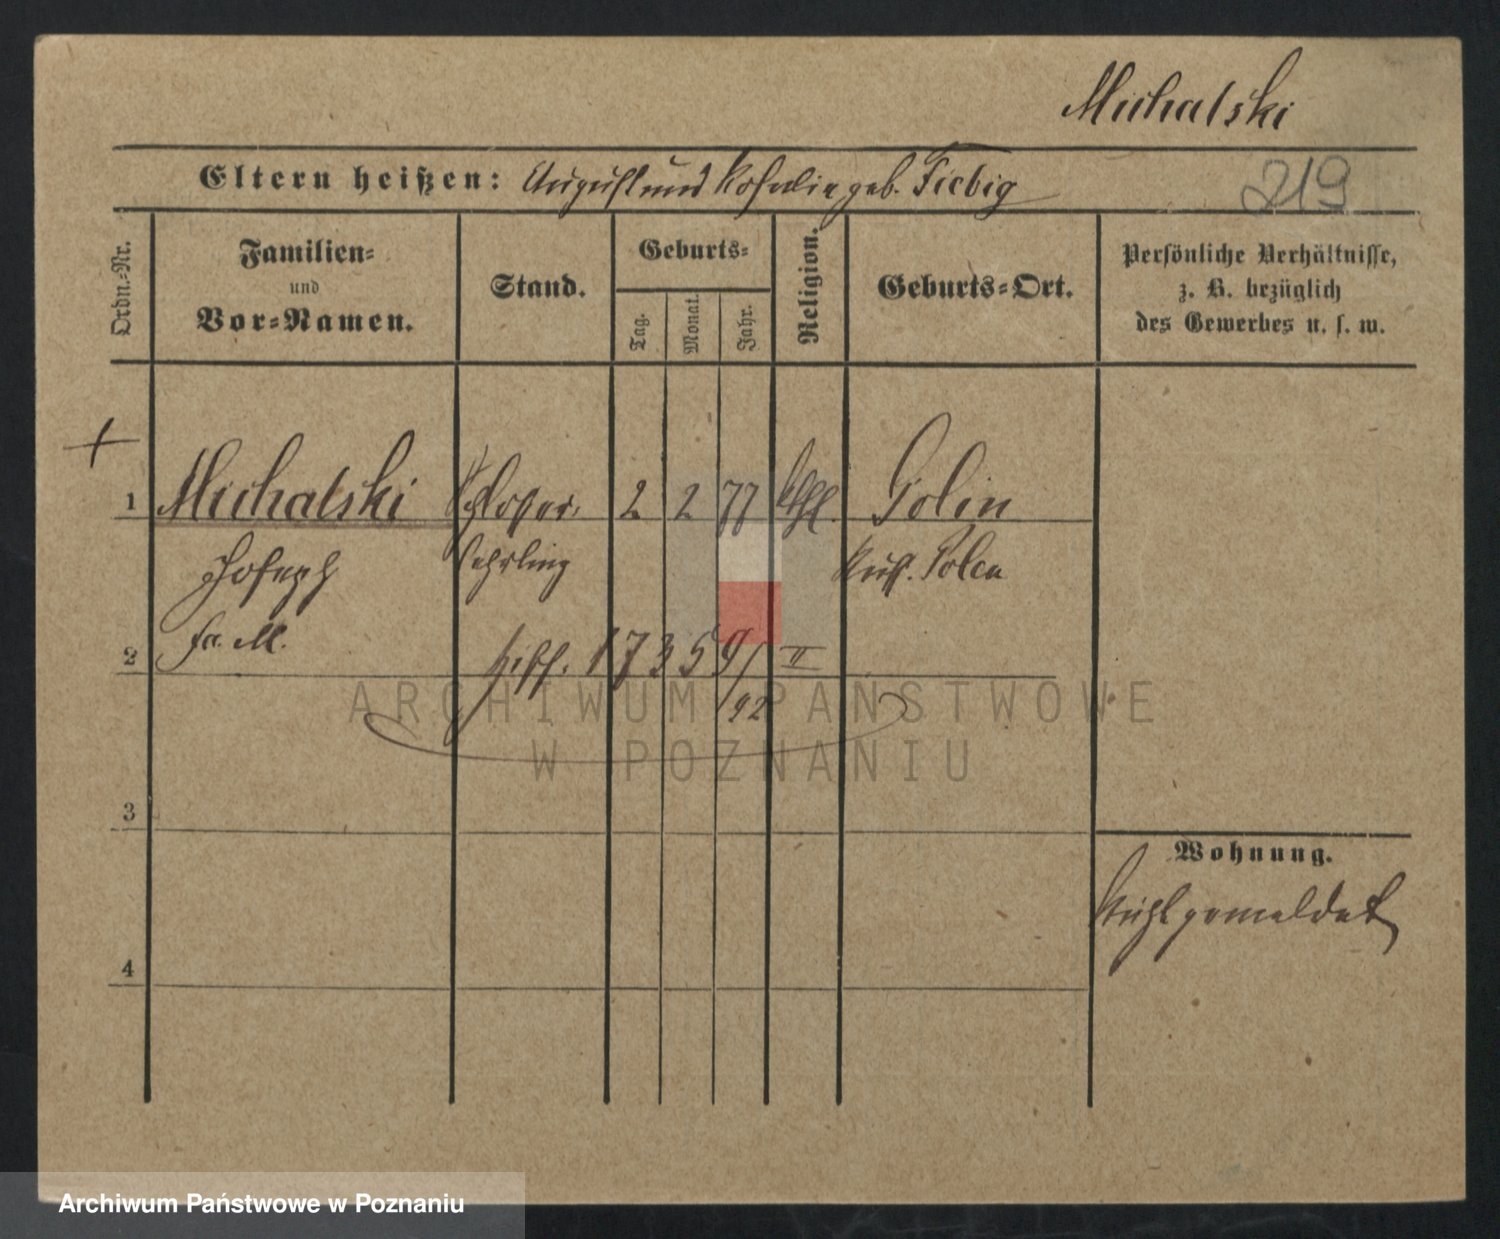 Michalski
Eltern heißen: August und Rosalie geb. Fiebig
219
Ordn.-Nr.
Familien-
und
Vor-Namen.
Stand.
Geburts-
Tag.
Monat.
Jahr.
Religion.
Geburts-Ort.
Persönliche Verhältnisse,
z. B. bezüglich
des Gewerbes u. s. w.
+
1 Michalski Schlosser- 2 2 77 kthl. Golin
Joseph lehrling Russ. Polen
2 fr. M. 17359/92 II
3
4
Wohnung.
ARCHIWUM PAŃSTWOWE
W POZNANIU
Archiwum Państwowe w Poznaniu